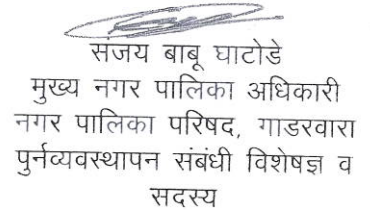 संजय बाबू घाटोडे
मुख्य नगर पालिका अधिकारी
नगर पालिका परिषद, गाडरवारा
पुर्नव्यवस्थापन संबंधी विशेषज्ञ व
सदस्य